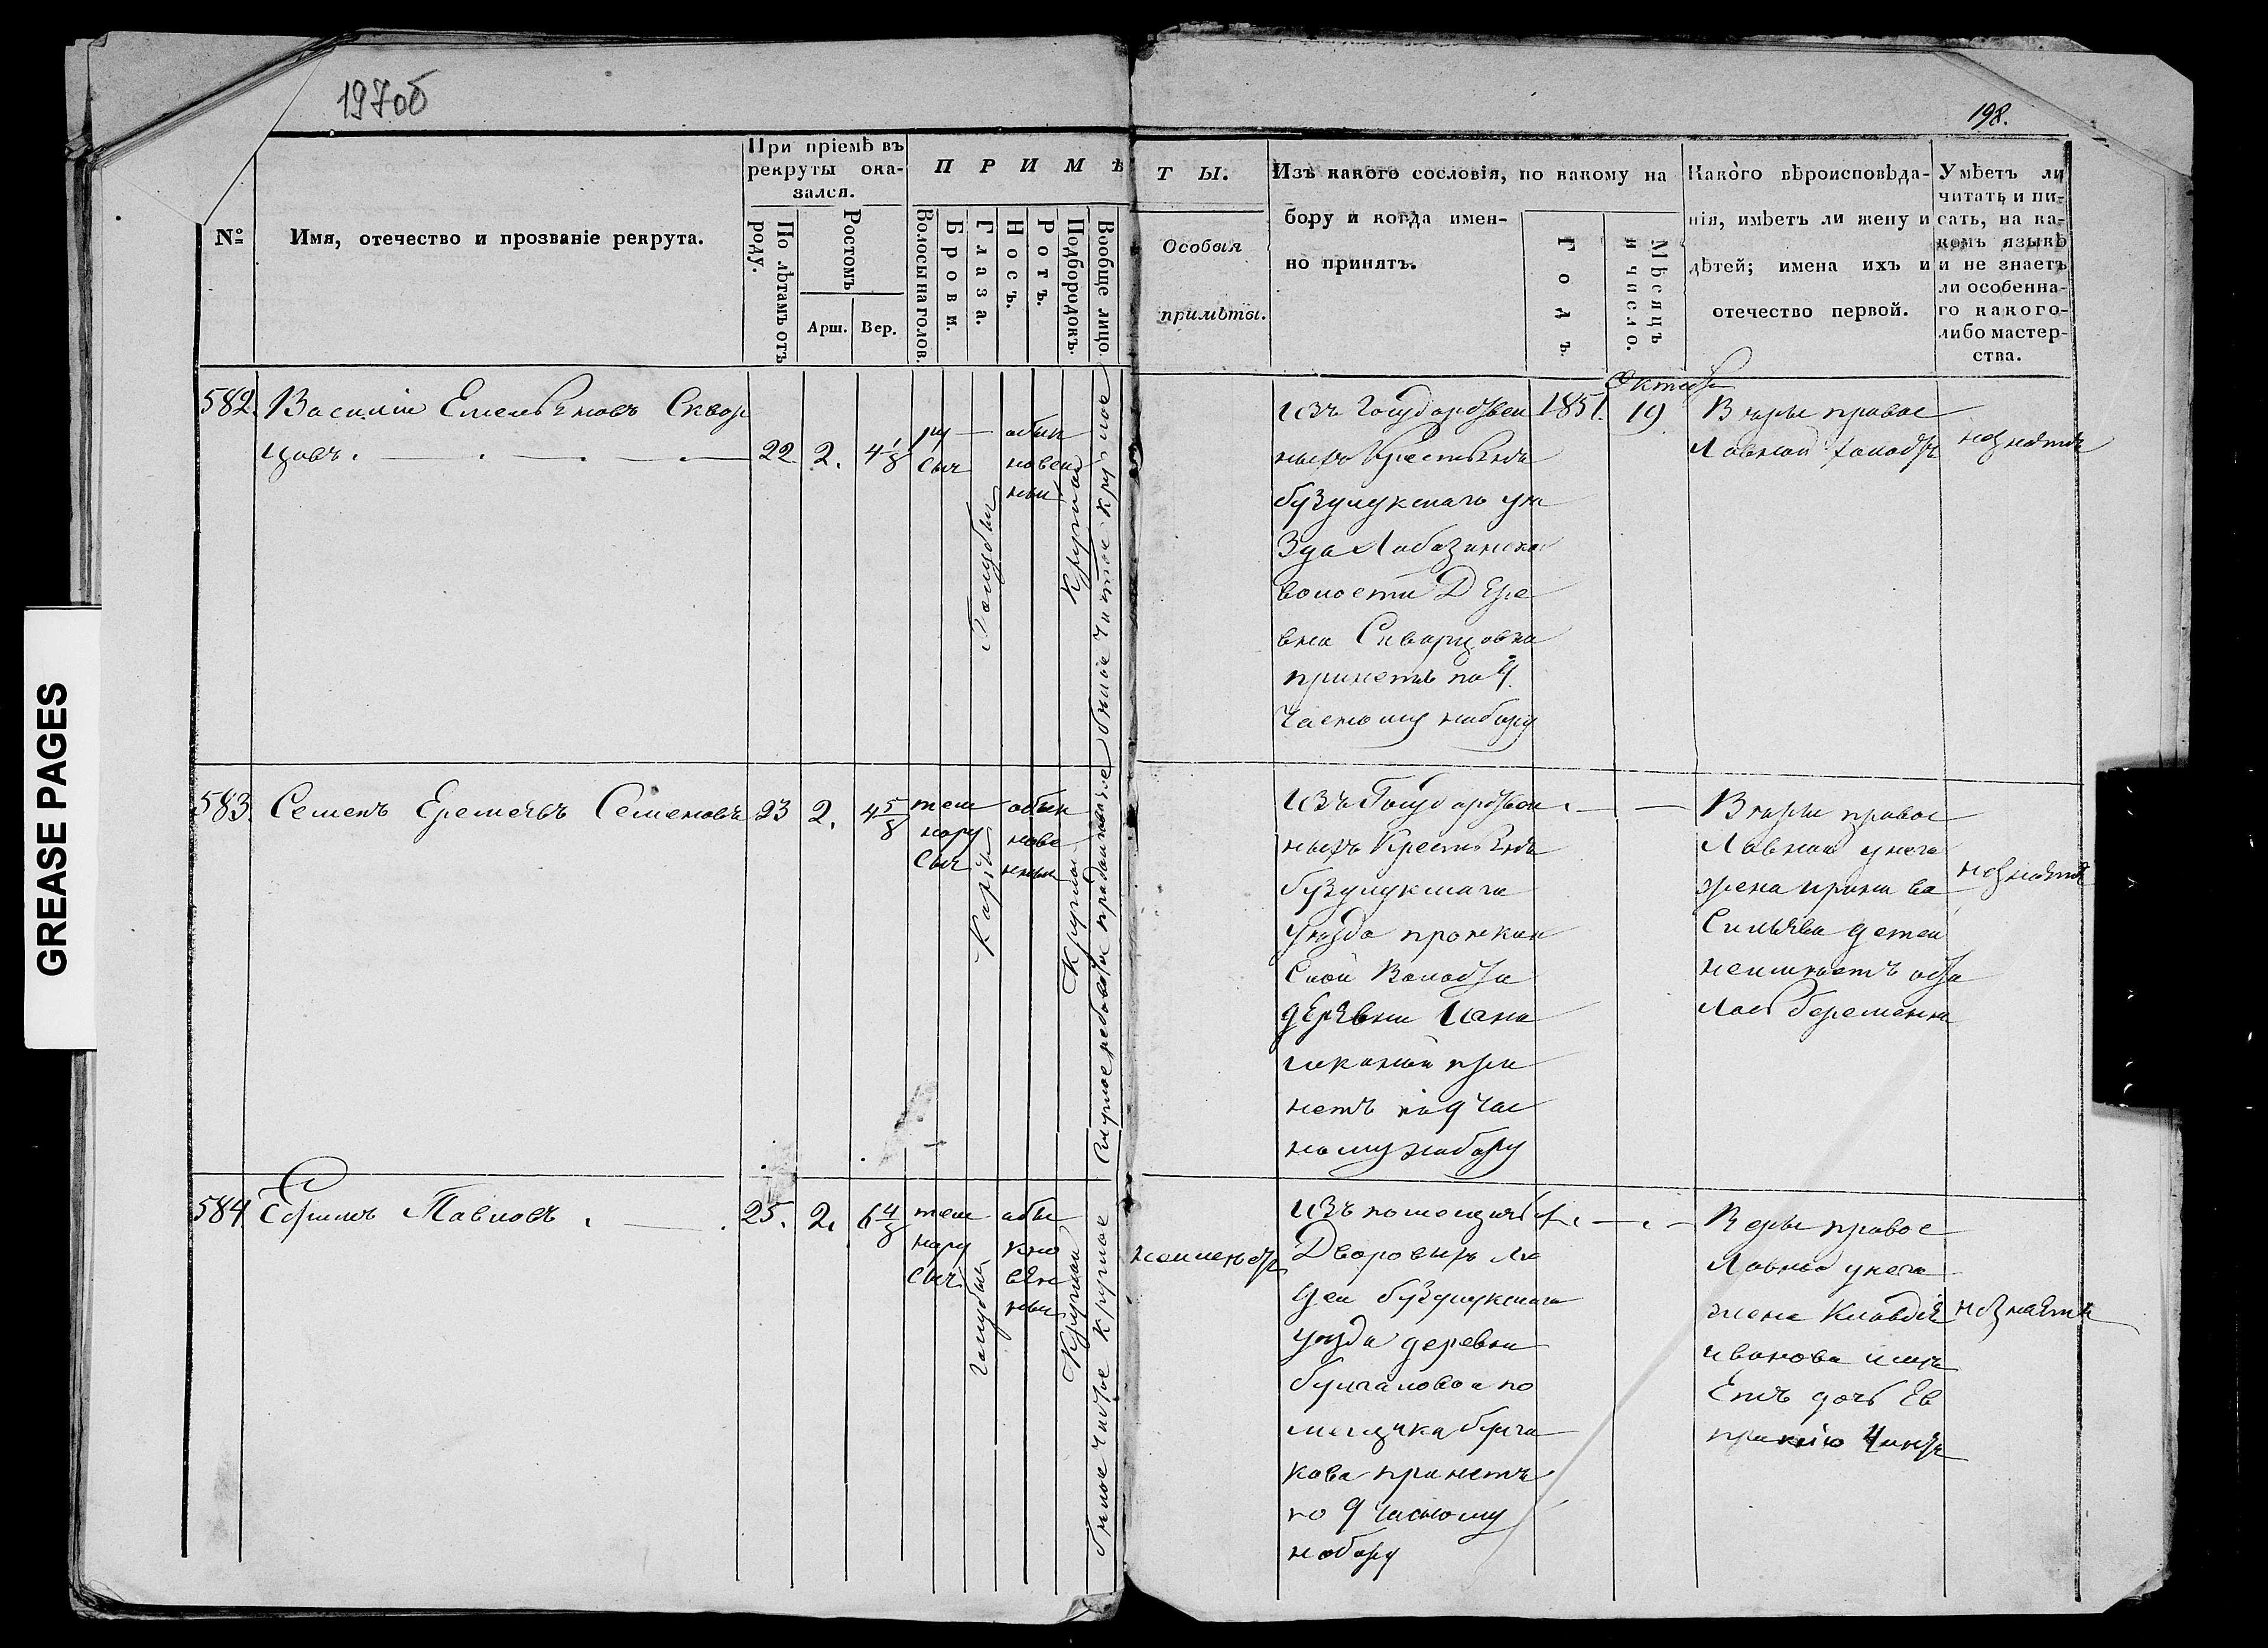 197об
198.
GREASE PAGES
№
Имя, отечество и прозваніе рекрута.
При пріемѣ въ
рекруты ока-
зался.
По лѣтамъ отъ
роду.
Ростомъ
Арш. Вер.
ПРИМѢТЫ.
Волосы на голов.
Брови.
Глаза.
Носъ.
Ротъ.
Подбородокъ.
Вообще лицо.
Особыя
примѣты.
Изъ какого сословія, по какому на
бору и когда имен-
но принятъ.
Годъ.
Мѣсяцъ
и число.
Како́го вѣроисповѣда-
нія, имѣетъ ли жену и
дѣтей; имена ихъ и
отечество первой.
Умѣетъ ли
читать и пи-
сать, на ка-
комъ языкѣ
и не знаетъ
ли особенна-
го какого-
либо мастер-
ства.
582.
Василіи Емельяновъ Сквор
цовъ.
22
2.
4 1/8
ру
сыя
Голубыя
обык
новен
ныи
Круглои
белое чистое круглое
изъ Государствен
ныхъ Крестьянъ
бузулукскаго уѣ
зда Лабазинскои
волости Дере
вни Скварцовки
принетъ по 9.
частному набору
1851.
Октября
19
Вѣры правос
лавнои холостъ
незнаетъ
583.
Семенъ Еремеѣвъ Семеновъ
23
2.
4 5/8
тем
нору
сыя
Каріи
обык
нове
нныи
Круглои
смуглое рябоватое продолговатое
изъ Государствен
ныхъ Крестьянъ
бузулукскаго
уѣзда проскин
скои Волости
деревни
принетъ по 9 час
ному набору
Вѣры правос
лавнои унего
жена ирина ва
сильява детеи
неимѣетъ оста
лась беременна
незнаетъ
584
Ефимъ Павловъ.
25.
2.
6 4/8
тем
нору
сыя
голубыя
обы
кно
вен
ныи
Круглои
белое чистое круглое
неимѣетъ
изъ помещичьихъ
Дворовыхъ лю
деи бузулукскаго
уѣзда деревни
по
мещика
кова принетъ
по 9 часному
набору
Веры правос
лавнои унего
жена Клавдія
иванова имѣ
етъ дочь Ев
праксію
незнаетъ